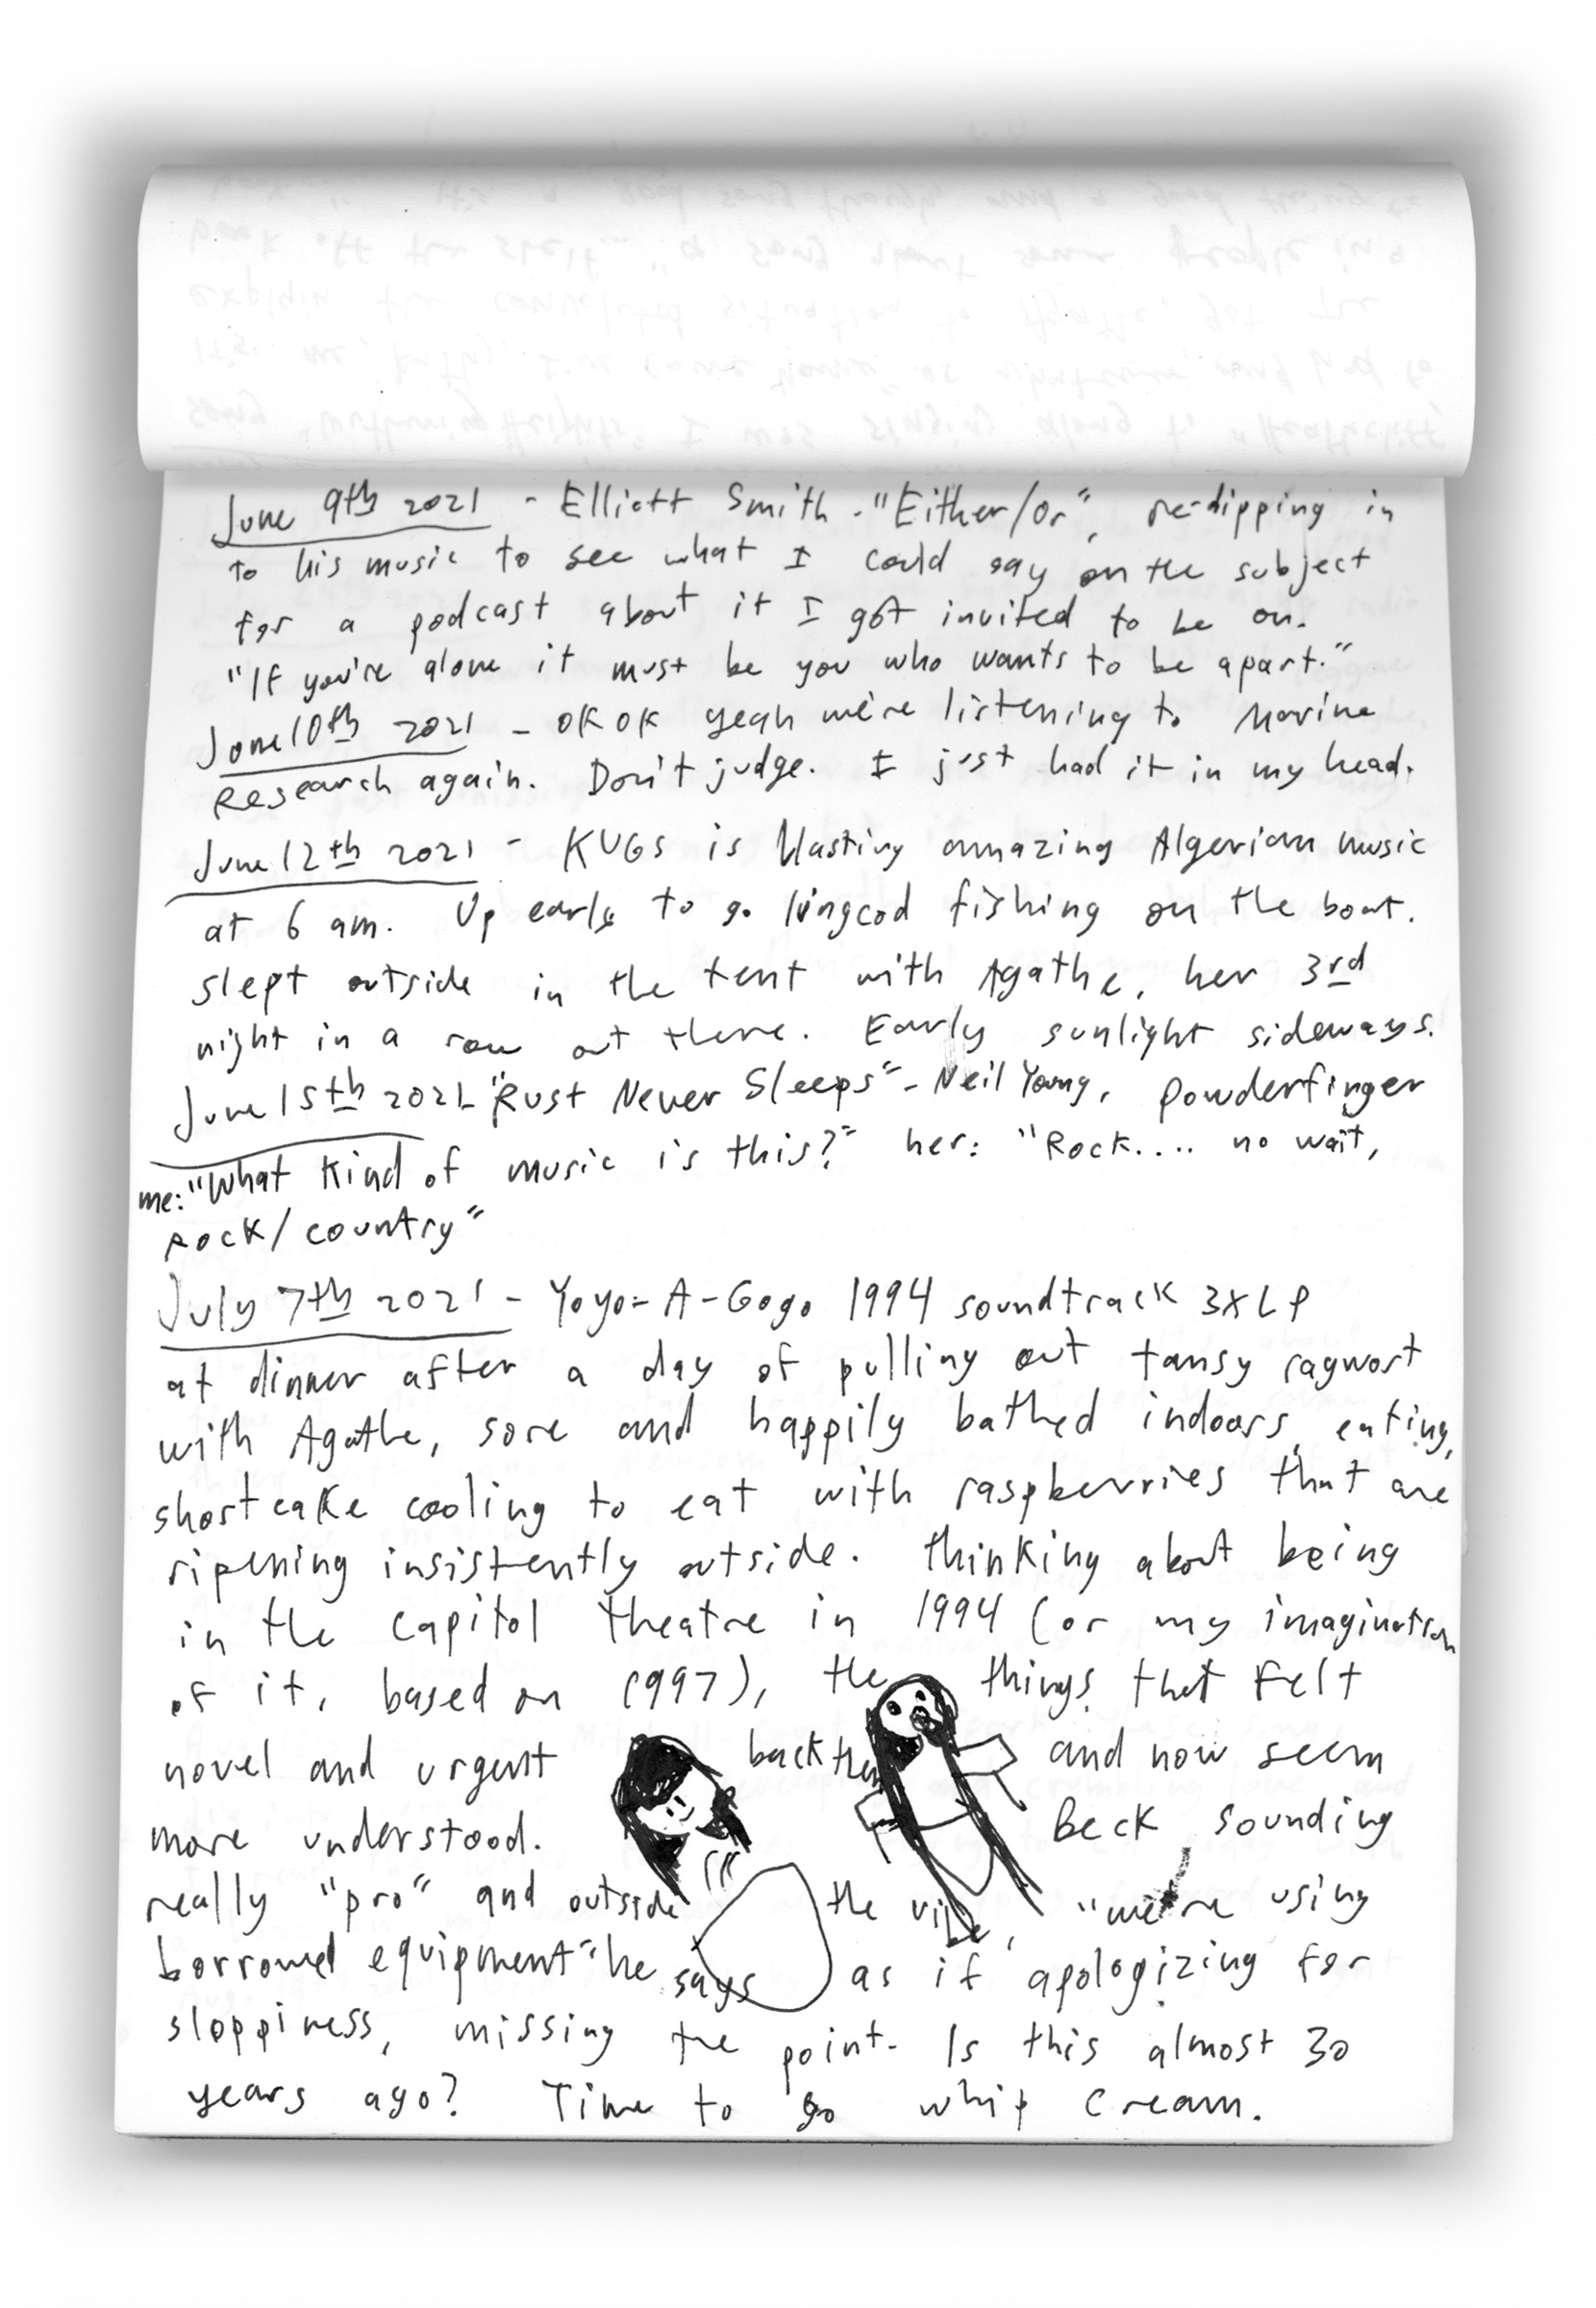 June 9th 2021 - Elliott Smith - "Either/Or", re-dipping in
to his music to see what I could say on the subject
for a podcast about it I got invited to be on.
"If you're alone it must be you who wants to be apart."
June 10th 2021 - OK OK yeah we're listening to Marine
Research again. Don't judge. I just had it in my head.
June 12th 2021 - KUGS is blasting amazing Algerian music
at 6 am. Up early to go lingcod fishing on the boat.
Slept outside in the tent with Agathe, her 3rd
night in a row out there. Early sunlight sideways.
June 15th 2021 - "Rust Never Sleeps" - Neil Young, Powderfinger
me: "What kind of music is this?" her: "Rock.... no wait,
Rock/country"
July 7th 2021 - Yoyo-A-Gogo 1994 soundtrack 3XLP
at dinner after a day of pulling out tansy ragwort
with Agathe, sore and happily bathed indoors, eating,
shortcake cooling to eat with raspberries that are
ripening insistently outside. Thinking about being
in the Capitol Theatre in 1994 (or my imagination
of it, based on 1997), the things that felt
novel and urgent back then and now seem
more understood. Beck sounding
really "pro" and outside the vibe, "we're using
borrowed equipment" he says as if apologizing for
sloppiness, missing the point. Is this almost 30
years ago? Time to go whip cream.